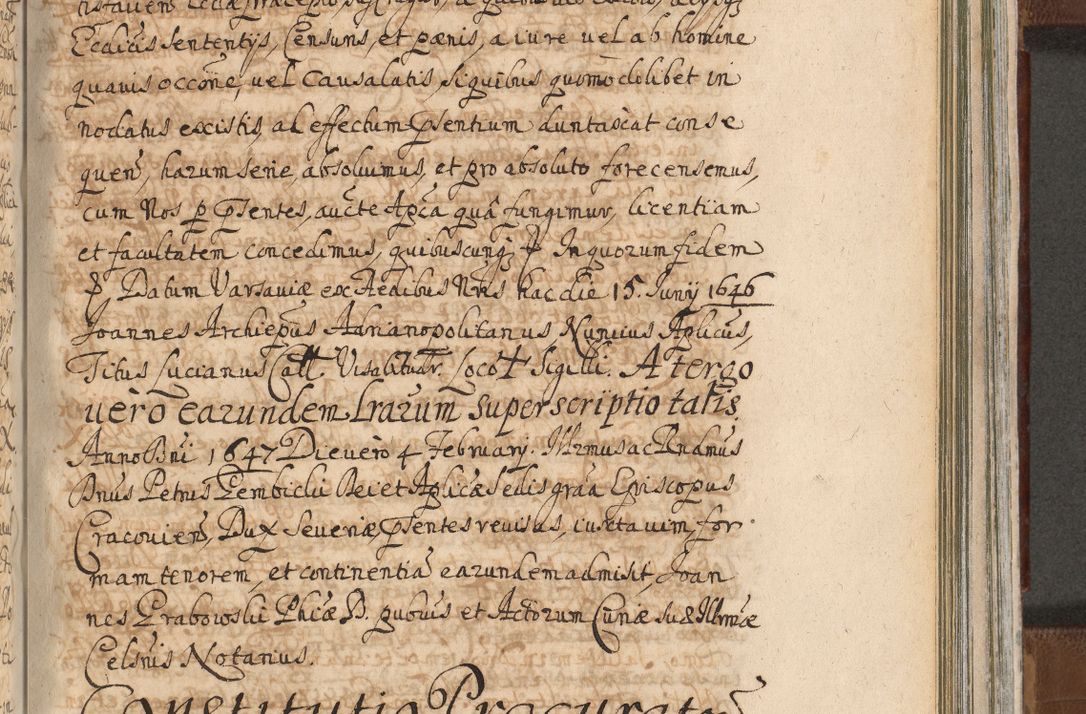 Ecclcis sententijs, Censuris, et pænis, a iure vel ab homine
quauis occõne, vel causa latis, si quibus quomodolibet in
nodatus existis, ad effectum pñsentium duntaxat conse
queñ, harum serie, absoluimus, et pro absoluto fore censemus,
cum Nos p pñsentes, aucte Aplca quâ fungimur, licentiam
et facultatem concedimus, quibuscunq; In quorum fidem
Datum Varsauiæ ex Aedibus Nris hac die 15. Iunij 1646
Joannes Archiepũs Adrianopolitanus, Nuncius Aplicus,
Titus Lucianus Locot Sigilli. A tergo
uerò earundem Lrarum superscriptio talis.
Anno Dñi 1647 Die uerò 4 Februarij. Illrmus ac Rndmus
Dnus Petrus Gembicki Dei et Aplicæ Sedis grãa Episcopus
Cracovieñ, Dux Severiæ pñsentes revisas, iuxta uim, for
mam tenorem, et continentiã earundem admisit, Joan
nes Grabowski Phiæ D. pubuis et Actorum Curiæ suæ Illrmæ
Celsñis Notarius.
Constitutio Procuratorũ